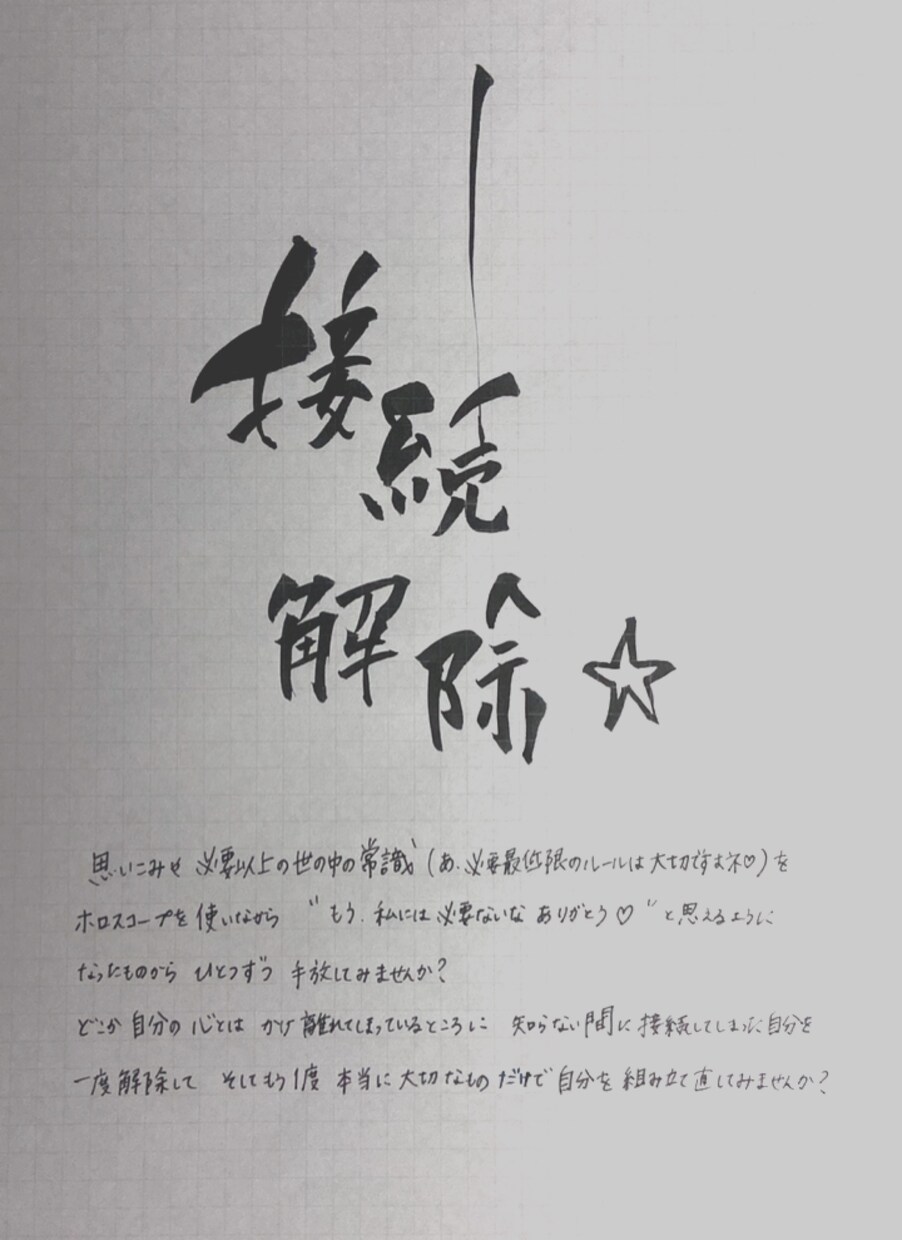 接続
解除☆
思いこみや 必要以上の世の中の常識 (あ、必要最低限のルールは大切ですよネ♡)を
ホロスコープを使いながら "もう、私には必要ないな ありがとう♡"と思えるように
なったものから ひとつずつ 手放してみませんか?
どこか自分の心とは かけ離れてしまっているところに 知らない間に接続してしまった自分を
一度解除して そしてもう1度 本当に大切なものだけで自分を組み立て直してみませんか?